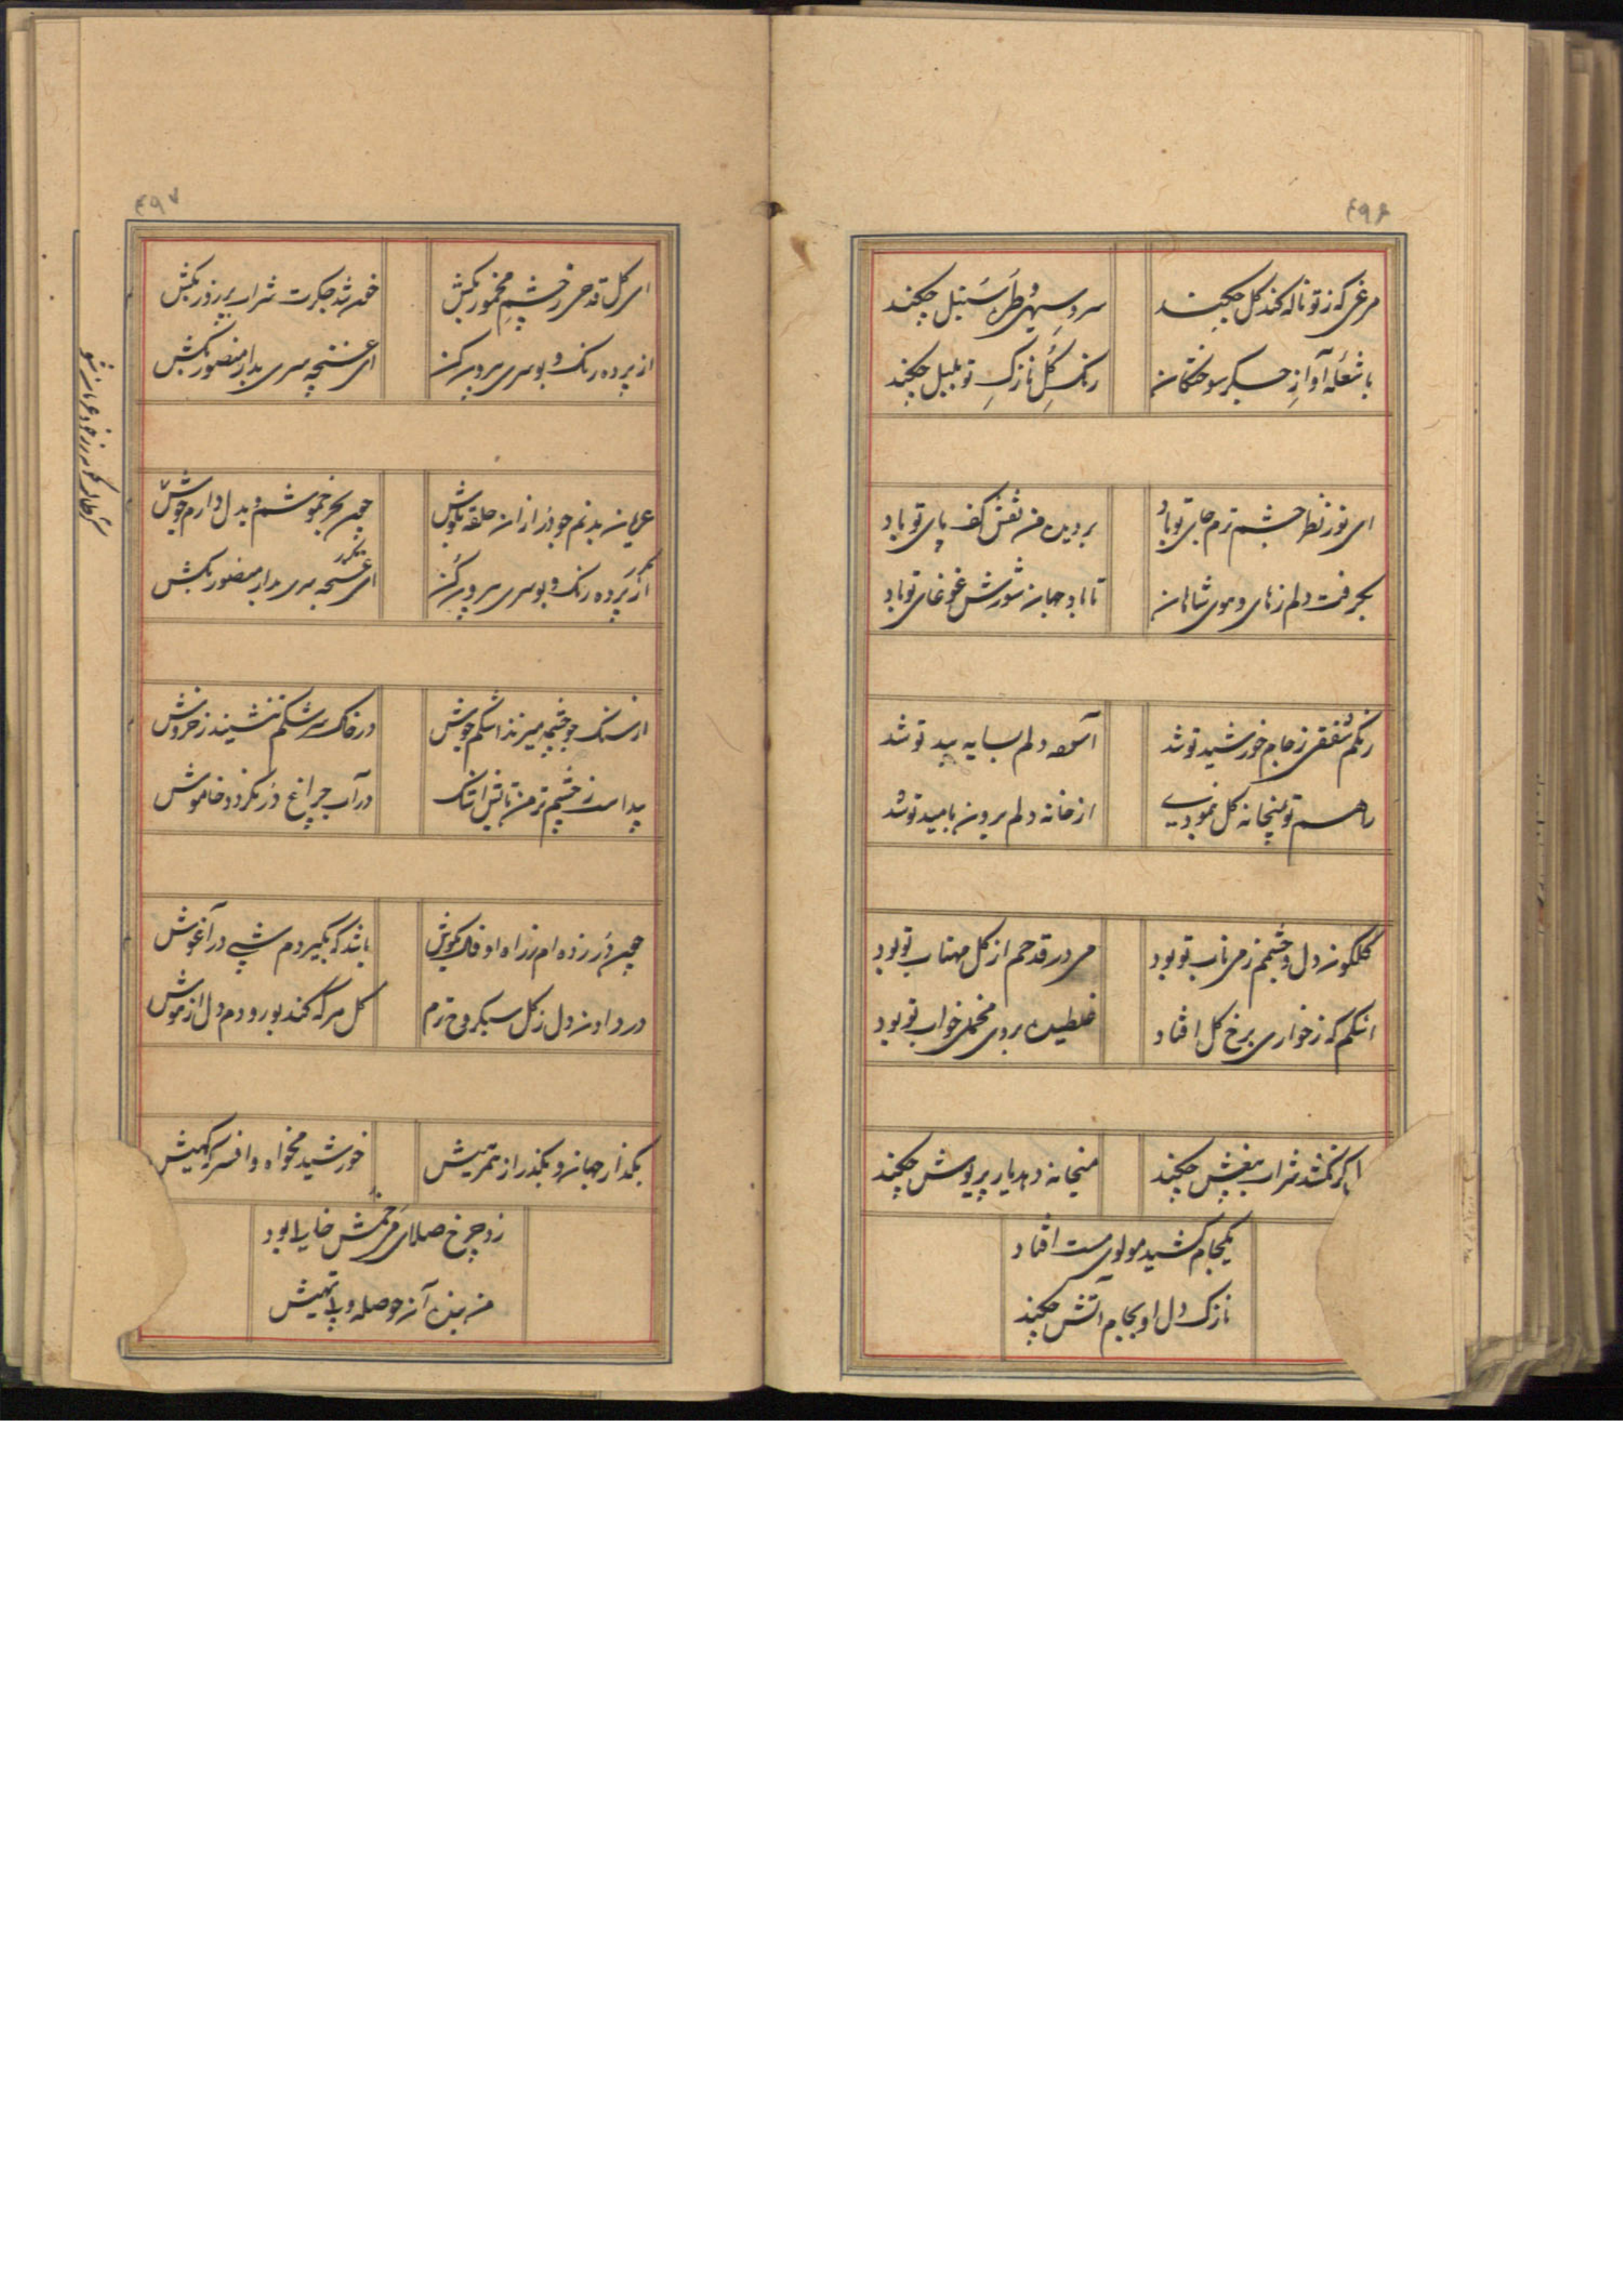 ۴۹۶
مرغی که ز تو ناله کند گل چکند
سرو سهی و طره سنبل چکند
با شعله آواز جگر سوختگان
رنگ گل نازک تو بلبل چکند
ای نور نظر چشم ترم جای تو باد
بر دیده من نقش کف پای تو باد
بگرفت دلم ز های و هوی شاهان
تا باد جهان شورش غوغای تو باد
رنگم شفقی ز جام خورشید تو شد
آسوده دلم بسایه بید تو شد
راهم تو بمیخانه گل نمودی
از خانه دلم برون بامید تو شد
گلگون دل و چشمم ز می ناب تو بود
می در قدحم از گل مهتاب تو بود
اشکم که ز خواری برخ گل افتاد
غلطیده بروی مخمل خواب تو بود
گر نکشد شراب بیغش چکند
میخانه دهد یار پریوش چکند
یکجام کشید مولوی مست افتاد
نازک دل او بجام آتش چکند
۴۹۷
ای گل قدحی ز چشم مخمور بکش
خون شد جگرت شراب پر زور بکش
از پرده رنگ و بو سری بیرون کن
ای غنچه سری بدار منصور بکش
عریان بدنم چو در از آن حلقه بگوش
چون بحر خموشم و بدل دارم جوش
مکرر
از پرده رنگ و بو سری بیرون کن
مکرر
ای غنچه سری بدار منصور بکش
از سنگ چو چشمه میزند اشکم جوش
در خاک سرشکم ننشیند ز خروش
پیداست ز چشم تر من تابش اشک
در آب چراغ در نگردد خاموش
چون در زده ام ز راه او خاک بگوش
باشد که بگیردم شبی در آغوش
در دادن دل ز گل سبکروح ترم
گل هر که کند بو رودم دل از هوش
بگذار جهان و بگذر از مهر و مهیش
خورشید مخواه و افسر کهیش
زد چرخ صلای می خمش خالی بود
من بنده آن حوصله و